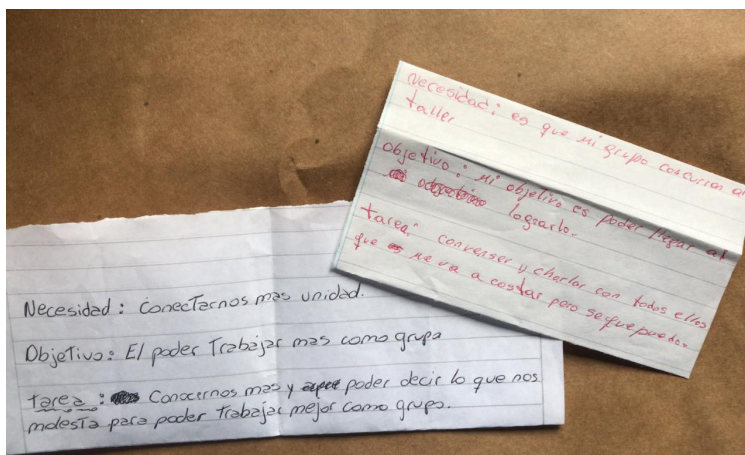 Necesidad: Conectarnos mas unidad.
Objetivo: El poder Trabajar mas como grupo
tarea: Conocernos mas y poder decir lo que nos
molesta para poder Trabajar mejor como grupo.
necesidad: es que mi grupo concurran al
taller
objetivo: Mi objetivo es poder llegar al
lograrlo.
tarea: convenser y charlar con todos ellos
que me va a costar pero se que puedo.